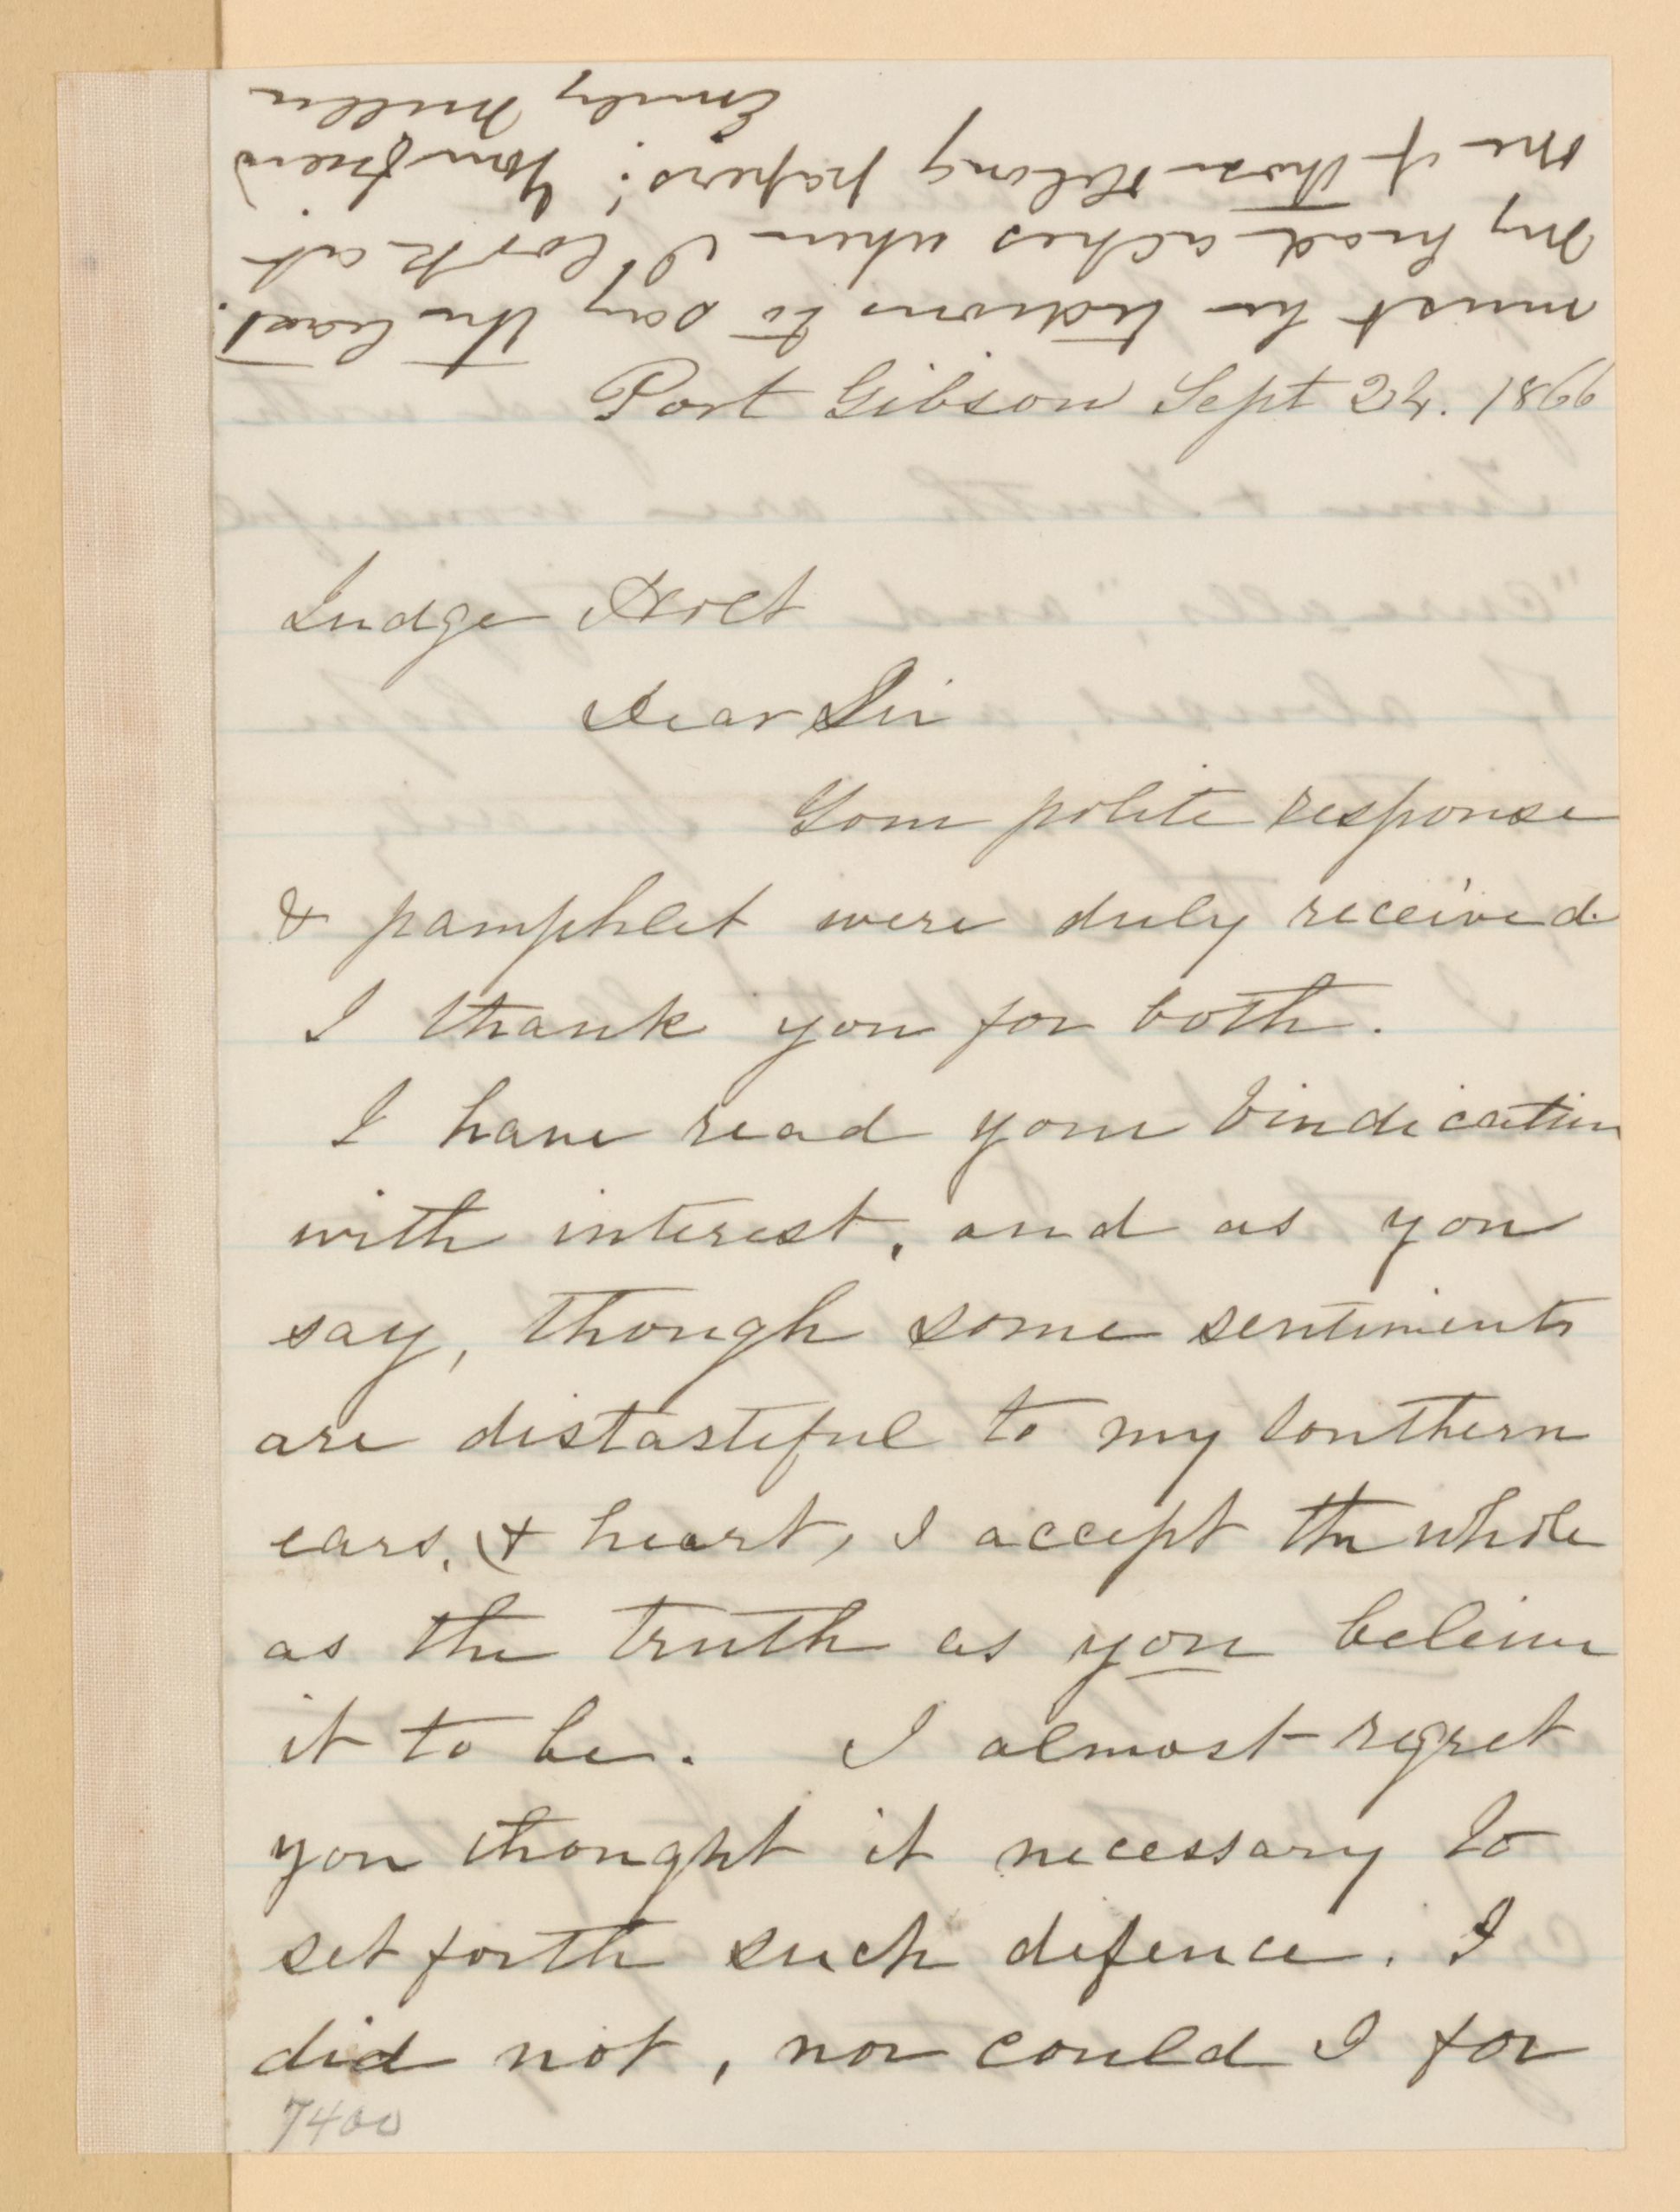 Port Gibson Sept 1866
Judge Holt
Dear Sir
Your polite response
& pamphlet were duly received.
I thank you for both.
I have read your Vindication
with interest, and as you
say, though some sentiments
are distasteful to my Southern
ears, & heart, I accept the whole
as the truth as you believe
it to be. I almost regret
you thought it necessary to
set forth such defence. I
did not, nor could I for
7400
must be tedious to say the least.
My head aches when I look at
one of those oblong papers! Your friend
Emily Miller